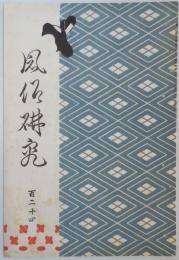 風俗研究
百二十四